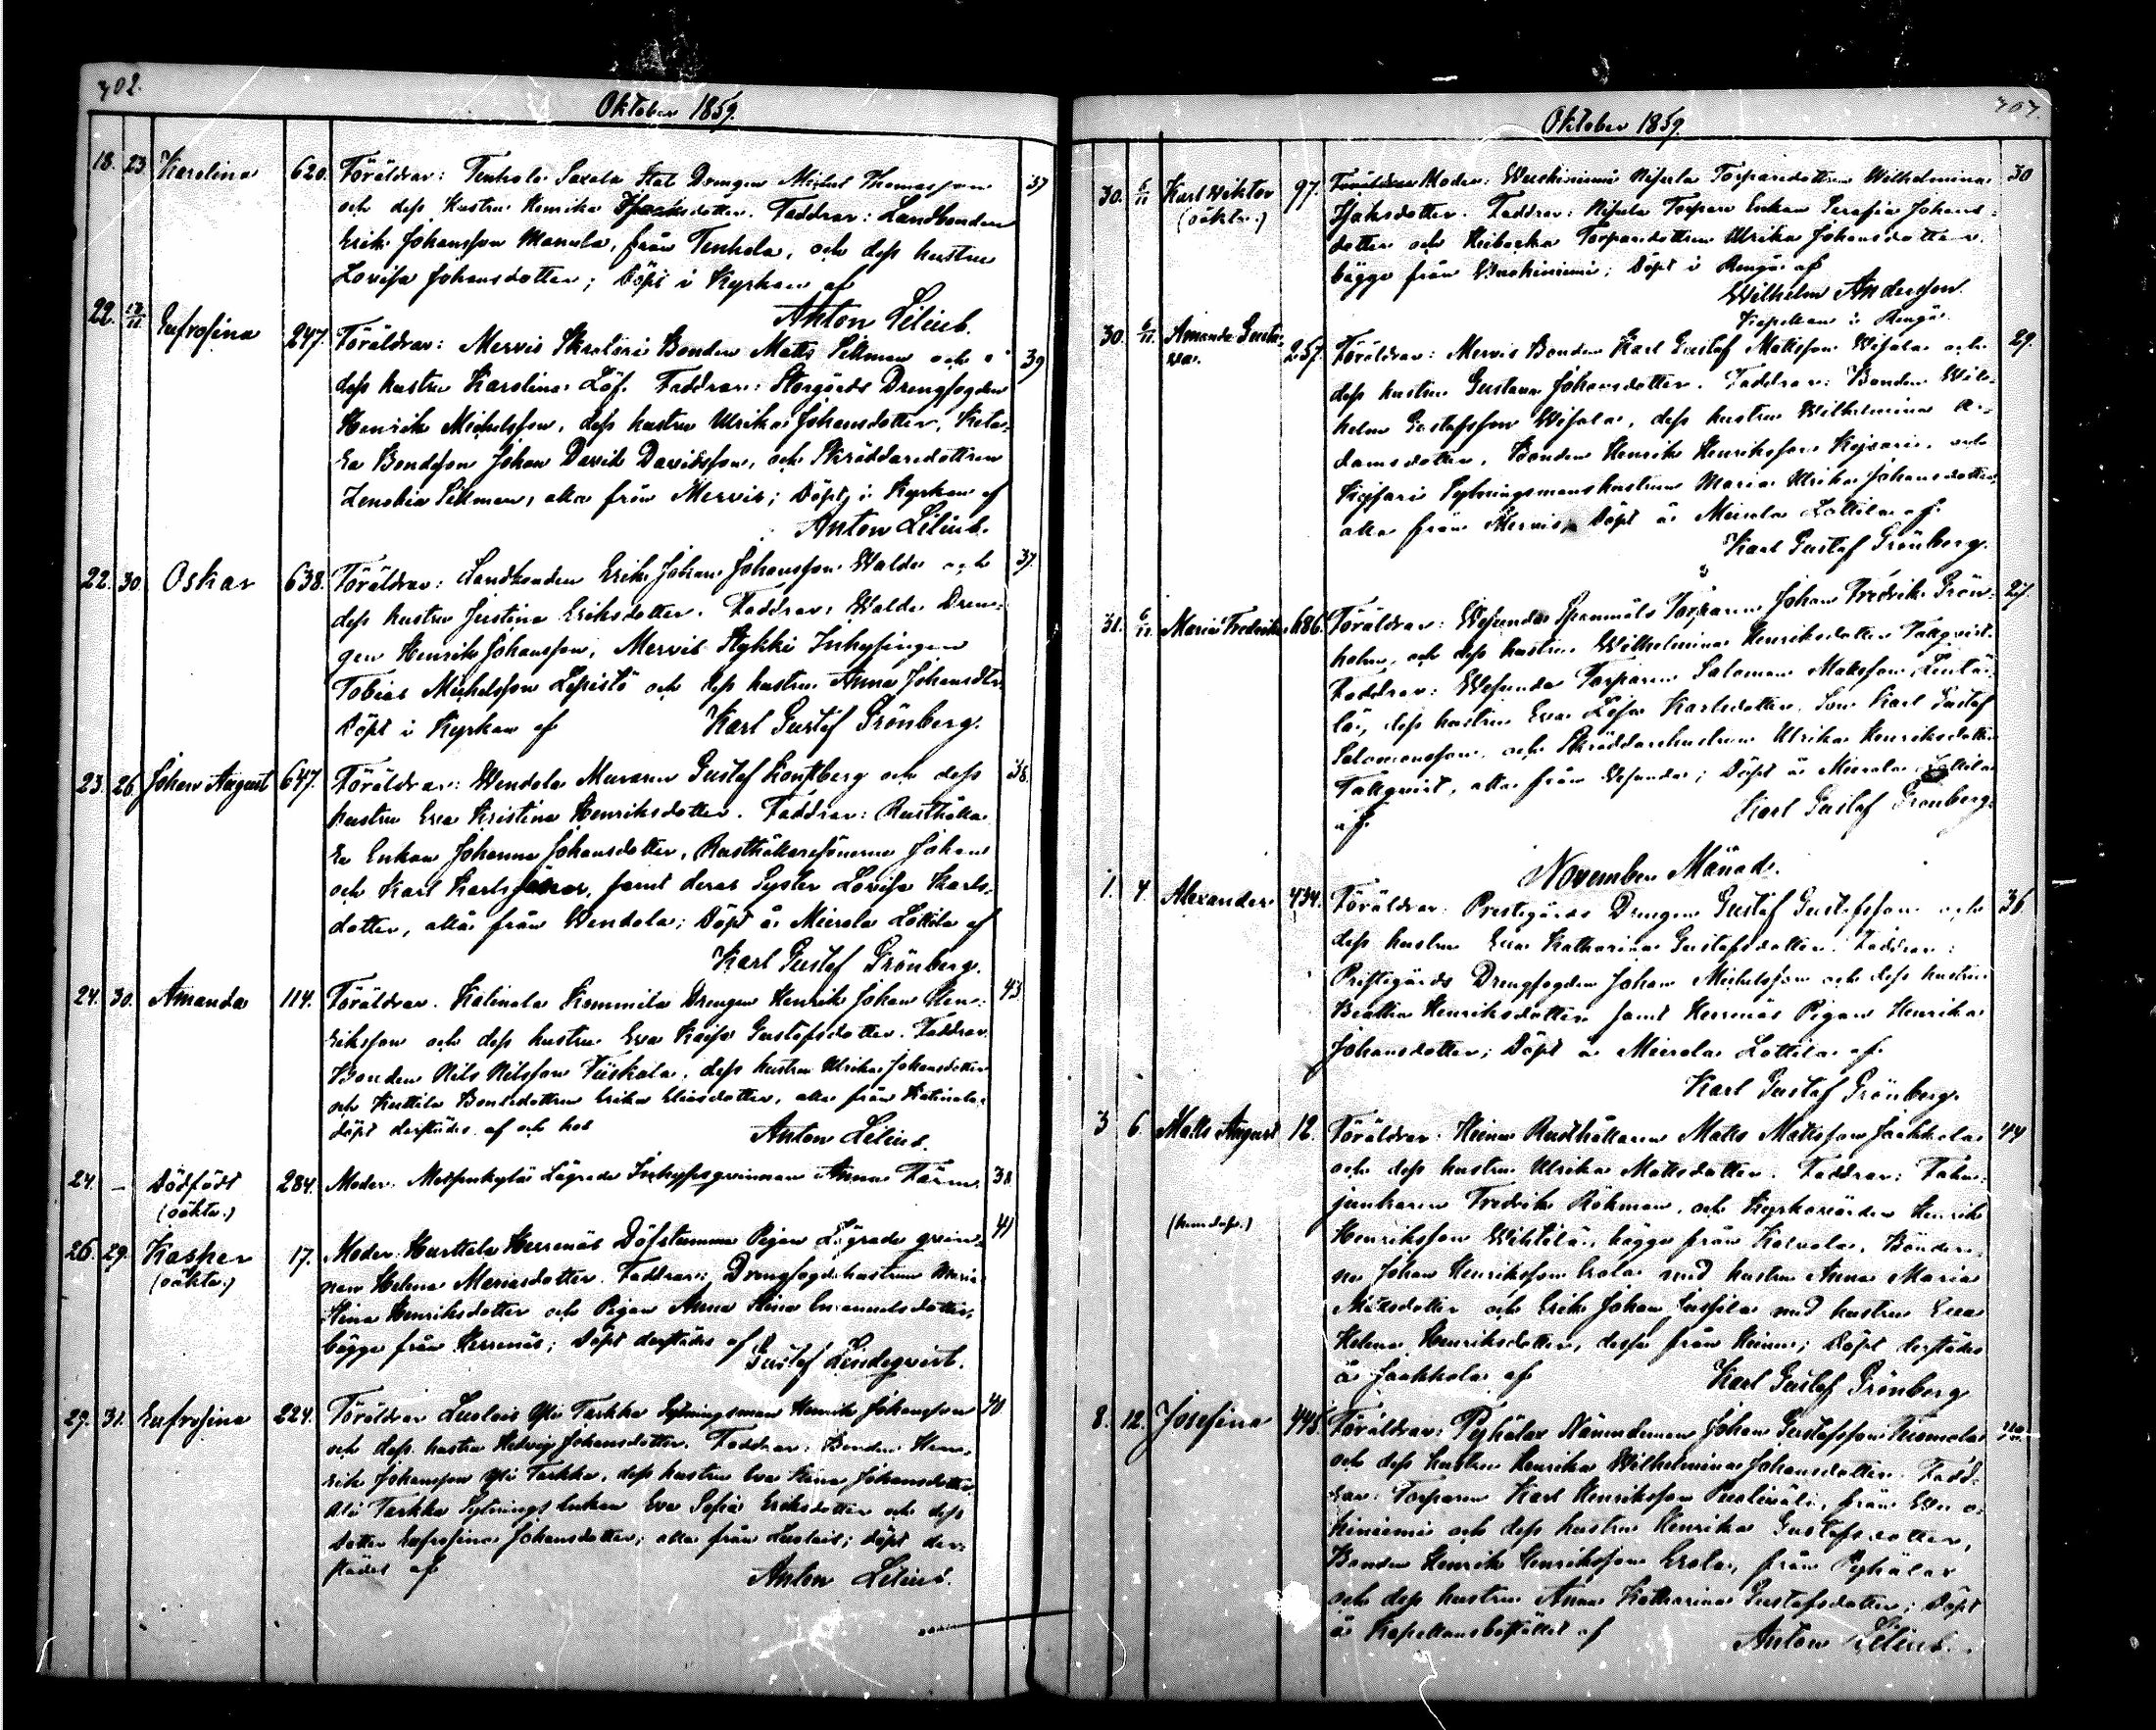 302.
Oktober 1859.
18. 23. Karolina 620. Föräldrar: Tenhola Saxala Stat Drengen Michel Thomasson 37
och dess hustru Henrika Isaksdotter. Faddrar: Landbonden
Erik Johansson Manula, från Tenhola, och dess hustru
Lovisa Johansdotter; Döpt i Kyrkan af
Anton Lilius.
22. Eufrosina 247. Föräldrar: Mervis Bonden Matts Sillman och 39
dess hustru Karolina Löf. Faddrar: Storgårds Drengfogden
Henrik Michelsson, dess hustru Ulrika Johansdotter,
Bondeson Johan David Davidsson, och Skräddaredottren
Zenobia Sillman, alla från Mervis; Döpt i Kyrkan af
Anton Lilius.
22. 30. Oskar 638. Föräldrar: Landbonden Erik Johan Johansson Walde och 37.
dess hustru Justina Eriksdotter. Faddrar: Walde Dren-
gen Henrik Johansson, Mervis Stykki Inhysingen
Tobias Michelsson Lepistö och dess hustru Anna Johansdtr.
Döpt i Kyrkan af Karl Gustaf Grönberg.
23. 26. Johan August 647. Föräldrar: Wendela Muraren Gustaf och dess 38.
hustru Eva Kristina Henriksdotter. Faddrar: Rusthålla-
re Enkan Johanna Johansdotter, Rusthållaresönerne Johan
och Karl Karlssöner, samt deras Syster Lovisa Karls-
dotter, alla från Wendela; Döpt å Mierola Lottila af
Karl Gustaf Grönberg.
24. 30. Amanda 114. Föräldrar. Katinala Kommila Drengen Henrik Johan Hen- 43
riksson och dess hustru Eva Kaisa Gustafsdotter. Faddrar.
Bonden Nils Nilsson Tuiskala, dess hustru Ulrika Johansdotter
och Kuttila Bondedottren Erika Eliasdotter, alla från Katinala.
döpt derstädes af och hos Anton Lilius.
24. — Dödfödt 284. Moder. Lägrade Inhysesqvinnan Anna 38
(oäkta.)
26. 29. Kasper 17. Moder. Hurttala Herrenäs Döfstumma Pigan Lägrade qvin- 41
(oäkta.) nan Helena Mariasdotter. Faddrar: Drengfogdehustrun Maria
Stina Henriksdotter och Pigan Anna Stina Emanuelsdotter,
bägge från Herrenäs; Döpt derstädes af
Gustaf Lindeqvist.
29. 31. Eufrosina 224. Föräldrar Lusleis Yli Tarkka Sytningsman Henrik Johansson 40
och dess hustru Hedvig Johansdotter. Faddrar. Bonden Hen-
rik Johansson Yli Tarkka, dess hustru Eva Stina Johansdotter,
Ali Tarkka Sytnings Enkan Eva Sofia Eriksdotter och dess
Dotter Eufrosina Johansdotter; alla från Lusleis; döpt der-
städes af Anton Lilius.
303.
Oktober 1859.
30. 6/11 Karl Wiktor 97. Föräldrar Moder: Wuohiniemi Torparedottren Wilhelmina 30
(oäkta.) Isaksdotter. Faddrar: Torpare Enkan Serafia Johans-
dotter och Torparedottren Ulrika Johansdotter.
bägge från Wuohiniemi; Döpt i Rengo af
Wilhelm Andersson.
Kapellan i Rengo.
30. 6/11 Amanda Gusta- 257. Föräldrar: Mervis Bonden Karl Gustaf Mattsson Wihala och 29.
va. dess hustru Gustava Johansdotter. Faddrar: Bonden Wil-
helm Gustafsson Wihala, dess hustru Wilhelmina A-
damsdotter, Bonden Henrik Henriksson, och
Sytningsmanshustrun Maria Ulrika Johansdotter,
alla från Mervis, Döpt å Mierola Lottila af
Karl Gustaf Grönberg.
31. 6/11 Maria Fredrika 686. Föräldrar: Wesunda Torparen Johan Fredrik Grön- 27.
holm, och dess hustru Wilhelmina Henriksdotter Tallqvist.
Faddrar: Wesunda Torparen Salomon Mattsson
dess hustru Eva Lisa Karlsdotter, Son Karl Gustaf
Salomonsson, och Skräddarehustrun Ulrika Henriksdotter
Tallqvist, alla från Wesunda; Döpt å Mierola Lottila
af Karl Gustaf Grönberg.
November Månad.
1. 4. Alexander 434. Föräldrar. Prestegårds Drengen Gustaf Gustafsson och 36
dess hustru Eva Katharina Gustafsdotter. Faddrar:
Prestegårds Drengfogden Johan Michelsson och dess hustru
Beatha Henriksdotter samt Herrenäs Pigan Henrika
Johansdotter; Döpt å Mierola Lottila af
Karl Gustaf Grönberg.
3 6. Matts August 12. Föräldrar: Hieno Rusthållaren Matts Mattsson Jaakkola 44
och dess hustru Ulrika Mattsdotter. Faddrar: Fahn-
junkaren Fredrik Rökman, och Kyrkovärden Henrik
(hemdöpt.) Henriksson Wihtilä, bägge från Kalvola, Bönder-
ne Johan Henriksson Erola med hustru Anna Maria
Mattsdotter och Erik Johan Jussila med hustru Eva
Helena Henriksdotter, dessa från Hieno; Döpt derstädes
å Jaakkola af Karl Gustaf Grönberg
8. 12. Josefina 445. Föräldrar: Pyhälax Nämndeman Johan Gustafsson Tuomola 40.
och dess hustru Henrika Wilhelmina Johansdotter. Fadd-
rar: Torparen Karl Henriksson, från Wuo-
hiniemi och dess hustru Henrika Gustafsdotter,
Bonden Henrik Henriksson Erola, från Pyhälax
och dess hustru Anna Katharina Gustafsdotter; Döpt
å Kapellansbostället af Anton Lilius.